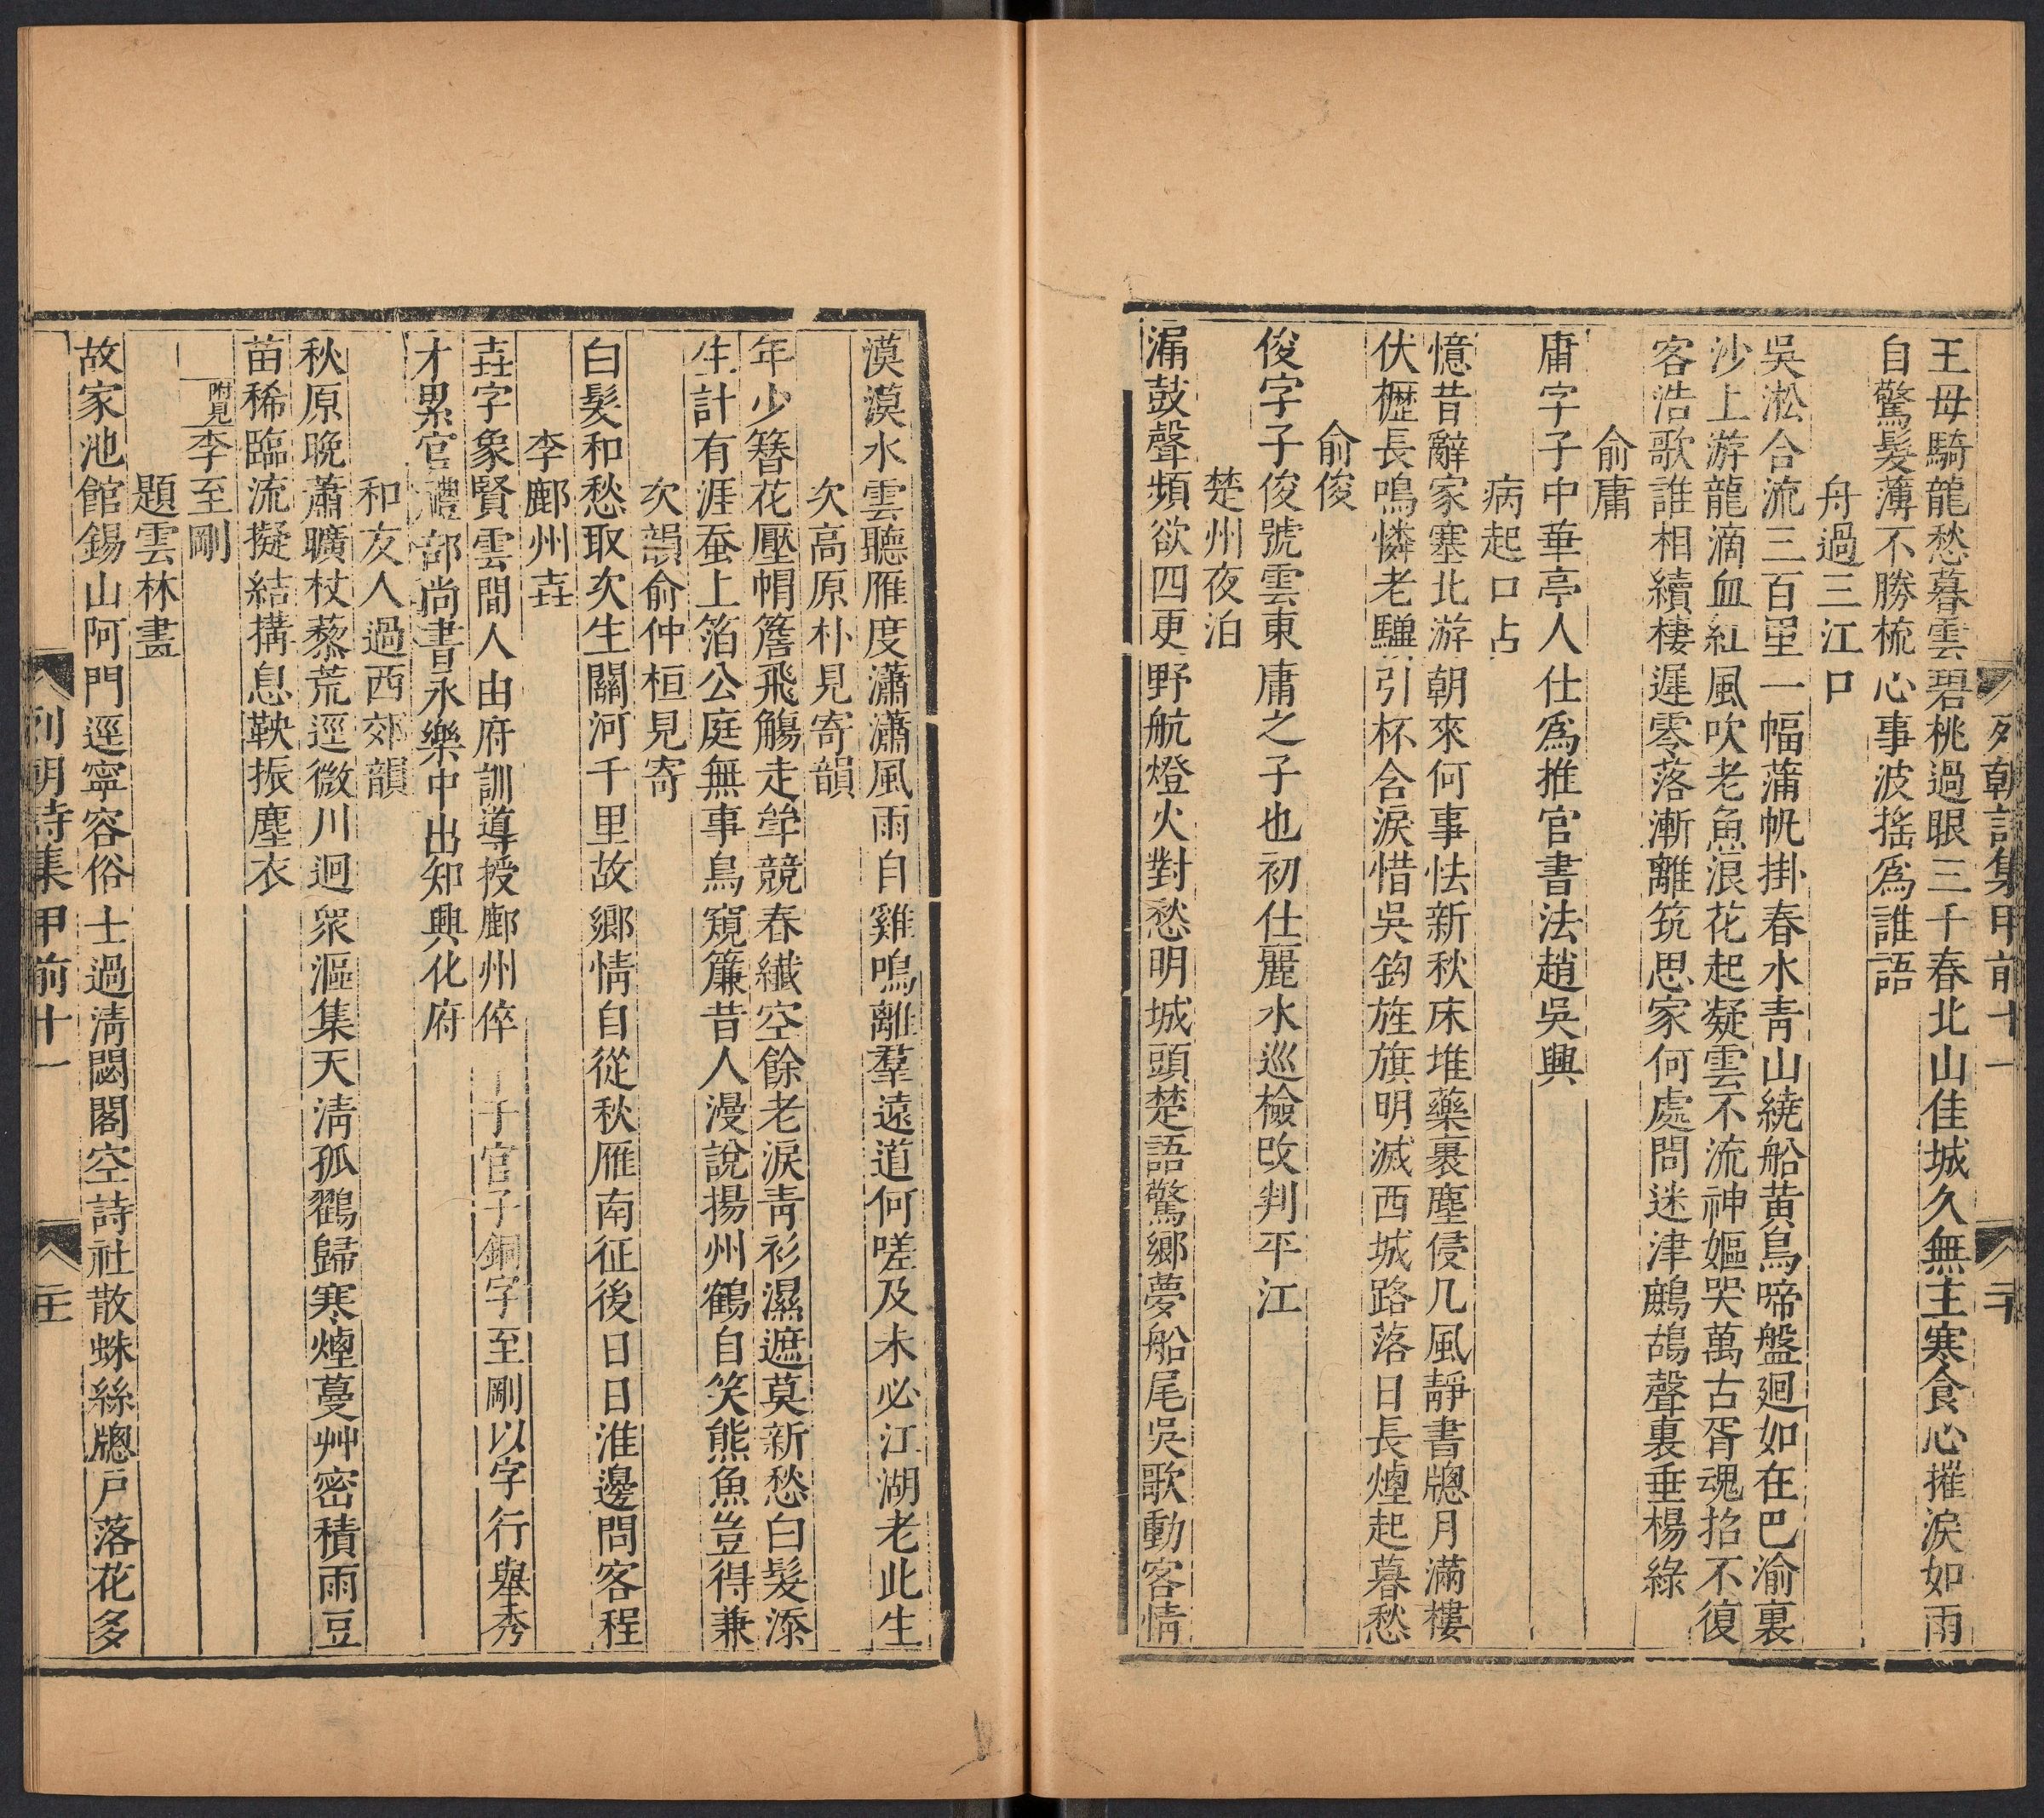 王母騎龍愁暮雲碧桃過眼三千春北山佳城久無主寒食心摧淚如雨
自驚髮薄不勝梳心事波搖爲誰語
舟過三江口
吳淞合流三百里一幅蒲帆掛春水青山繞船黃鳥啼盤廻如在巴渝裏
沙上游龍滴血紅風吹老魚浪花起凝雲不流神嫗哭萬古胥魂招不復
客浩歌誰相續棲遲零落漸離筑思家何處問迷津鷓鴣聲裏垂楊綠
俞庸
庸字子中華亭人仕爲推官書法趙吳興
病起口占
憶昔辭家塞北游朝來何事怯新秋床堆藥裹塵侵几風靜書牕月滿樓
伏櫪長鳴憐老驥引杯含淚惜吳鈎旌旗明滅西城路落日長煙起暮愁
俞俊
俊字子俊號雲東庸之子也初仕麗水巡檢改判平江
楚州夜泊
漏鼓聲頻欲四更野航燈火對愁明城頭楚語驚鄉夢船尾吳歌動客情
列朝詩集甲前十一
二十
漠漠水雲聽雁度瀟瀟風雨自雞鳴離羣遠道何嗟及未必江湖老此生
次高原朴見寄韻
年少簪花壓帽簷飛觴走斝競春纖空餘老淚青衫濕遮莫新愁白髮添
生計有涯蚕上箔公庭無事鳥窺簾昔人漫說揚州鶴自笑熊魚豈得兼
次韻俞仲桓見寄
白髮和愁取次生關河千里故鄉情自從秋雁南征後日日淮邊問客程
李鄜州壵
壵字象賢雲間人由府訓導授鄜州倅子官子銅字至剛以字行舉秀
才累官禮部尚書永樂中出知興化府
和友人過西郊韻
秋原晚蕭曠杖藜荒逕微川迴衆漚集天淸孤鸛歸寒煙蔓艸密積雨豆
苗稀臨流擬結搆息鞅振塵衣
附見李至剛
題雲林畫
故家池館錫山阿門逕寧容俗士過淸閟閣空詩社散蛛絲牕戶落花多
列朝詩集甲前十一
二十一